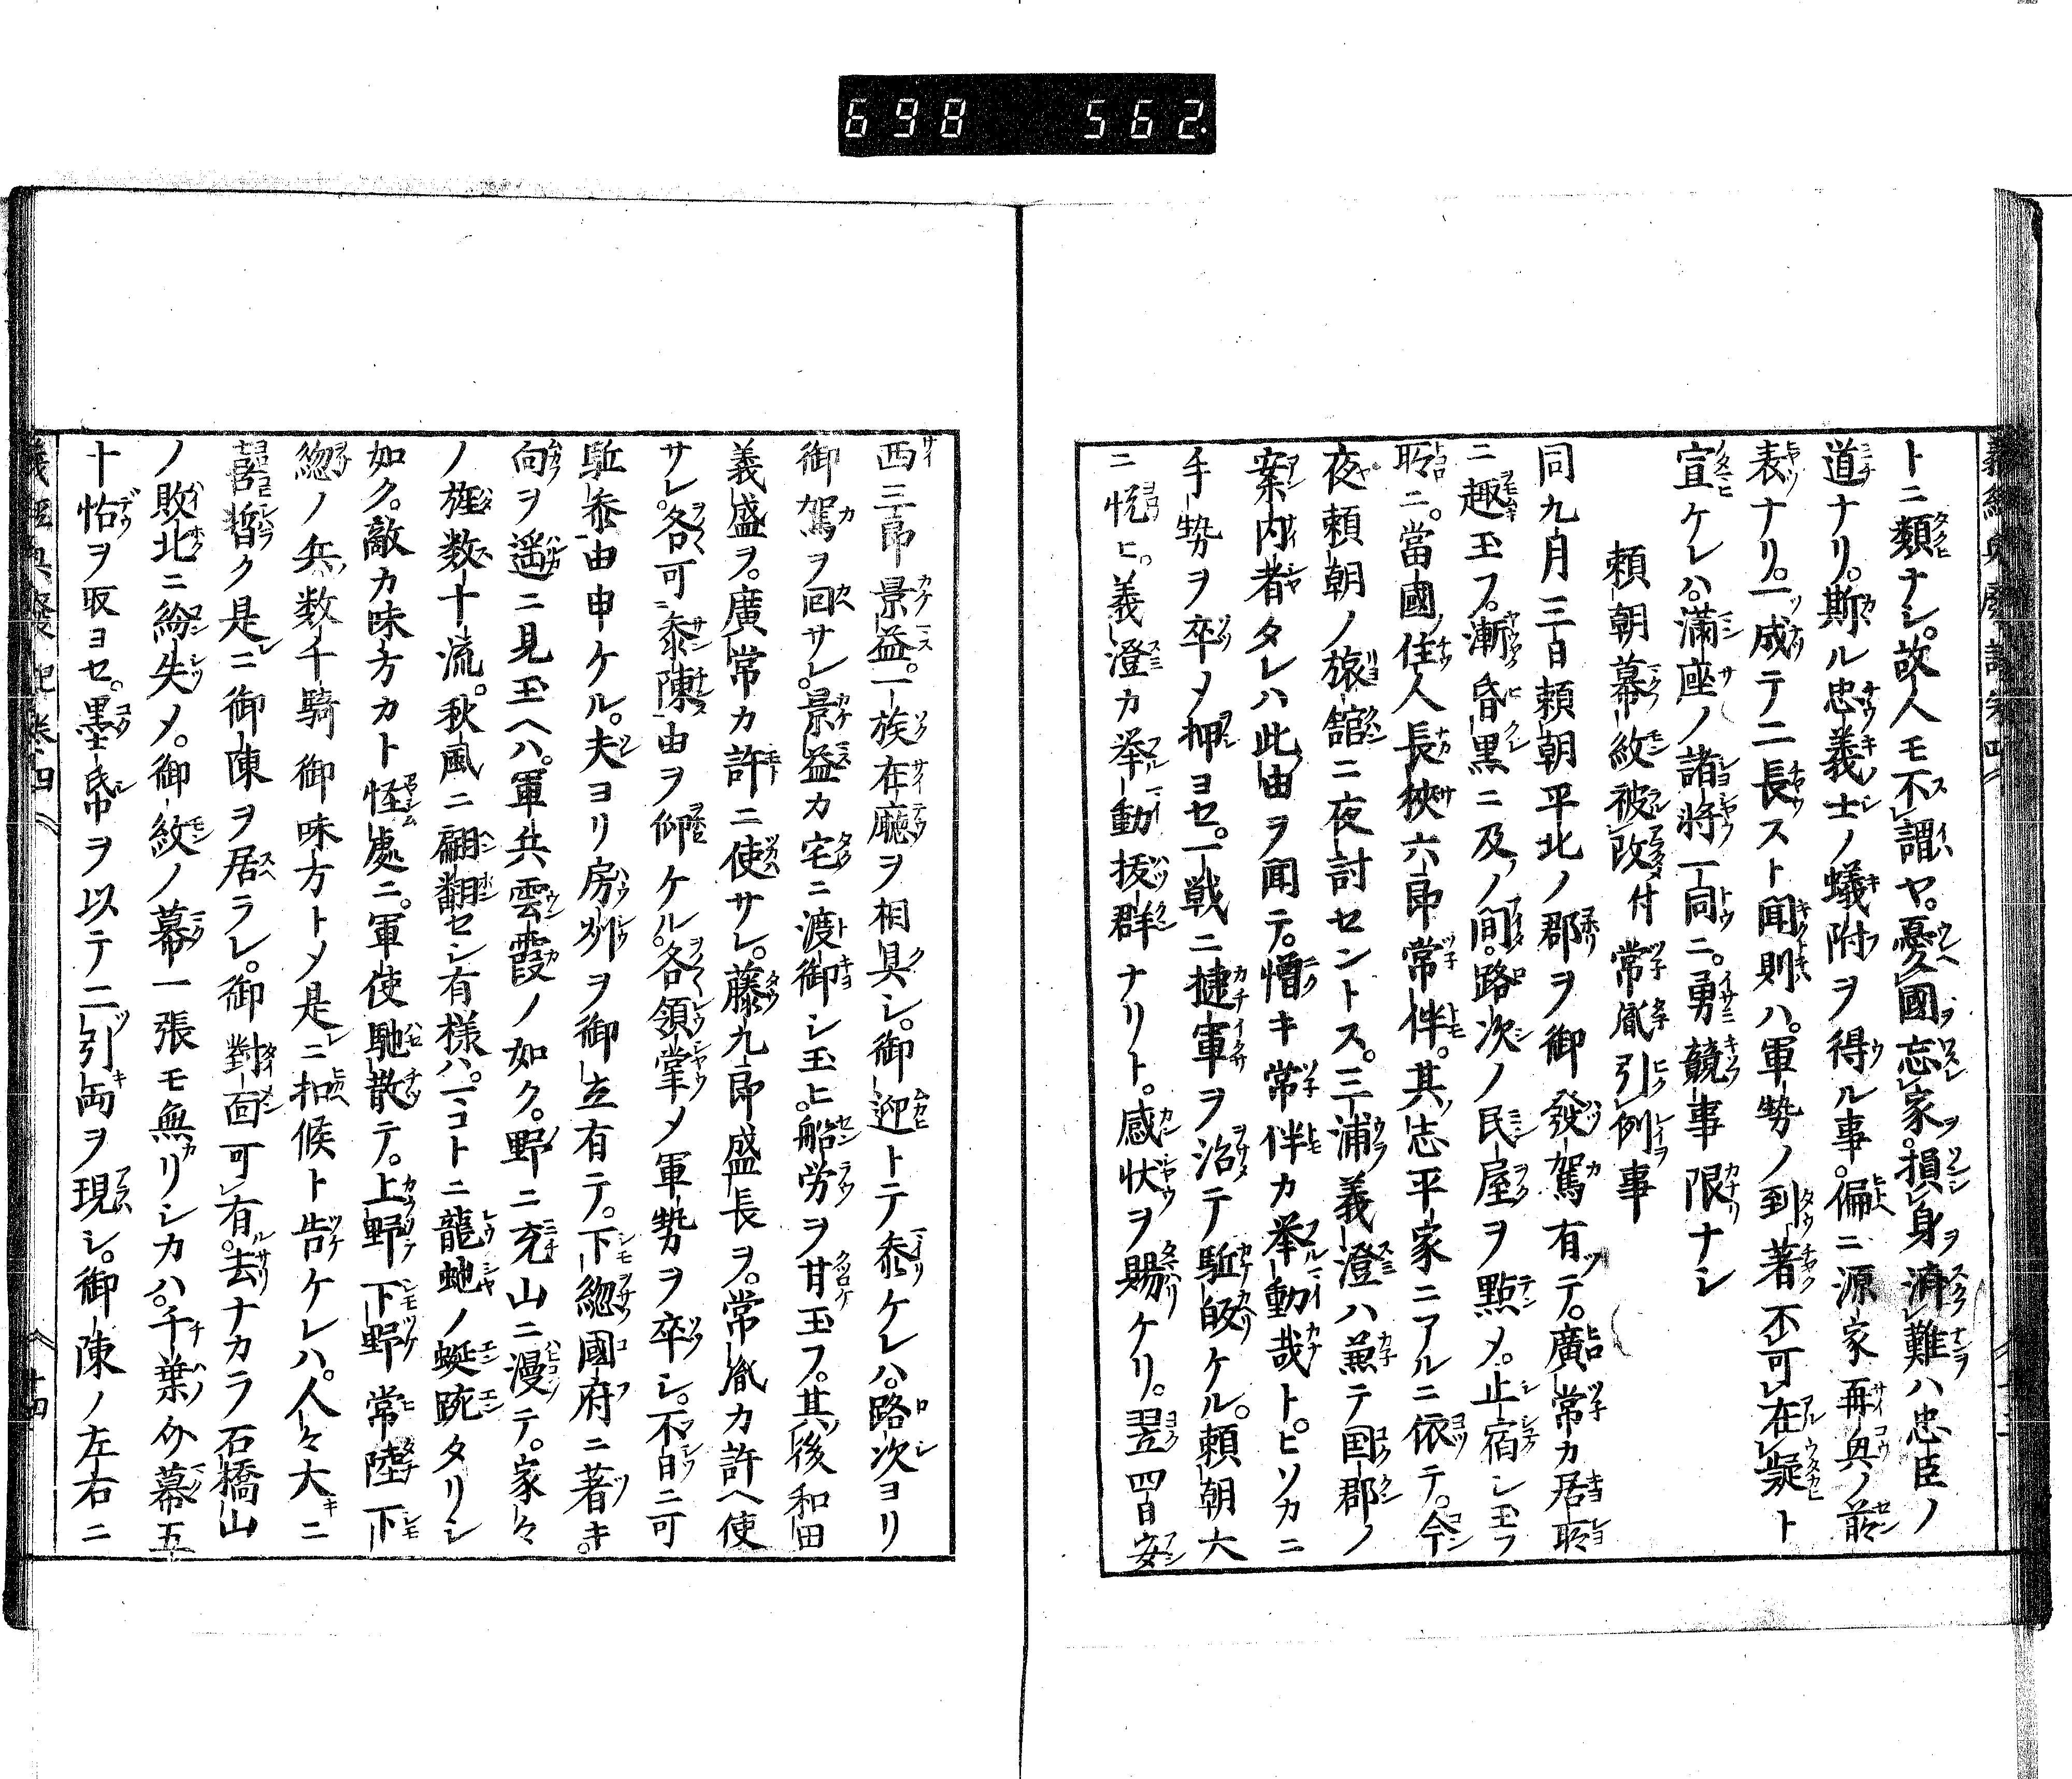 698 562.
トニ類ナシ。故人モ不謂ヤ。憂國忘家。損身濟難ハ忠臣ノ
道ナリ。斯ル忠義士ノ蟻附ヲ得ル事。偏ニ源家再興ノ前
表ナリ。一成テ二長スト聞則ハ。軍勢ノ到著不可在疑ト
宣ケレハ。滿座ノ諸將一同ニ。勇競事限ナシ
頼朝幕紋被改付常胤引例事
同九月三日頼朝平北ノ郡ヲ御發駕有テ。廣常カ居所
ニ趣玉フ。漸昏黒ニ及ノ間。路次ノ民屋ヲ點メ。止宿シ玉フ
所ニ。當國ノ住人長狹六郎常伴。其志平家ニアルニ依テ。今
夜頼朝ノ旅舘ニ夜討セントス。三浦義澄ハ兼テ国郡ノ
案内者タレハ此由ヲ聞テ。憎キ常伴カ挙動哉ト。ヒソカニ
手勢ヲ卒メ押ヨセ。一戦ニ捷軍ヲ治テ駈皈ケル。頼朝大
ニ悦ヒ。義澄カ挙動抜群ナリト。感状ヲ賜ケリ。翌四日安
西三郎景益。一族在廳ヲ相具シ。御迎トテ叅ケレハ。路次ヨリ
御駕ヲ回サレ。景益カ宅ニ渡御シ玉ヒ。船労ヲ甘玉フ。其後和田
義盛ヲ。廣常カ許ニ使サレ。藤九郎盛長ヲ。常胤カ許ヘ使
サレ。各可叅陳由ヲ仰ケル。各領掌メ軍勢ヲ卒シ。不日ニ可
駈叅由申ケル。夫ヨリ房州ヲ御立有テ。下総國府ニ著キ。
向ヲ遥ニ見玉ヘハ。軍兵雲霞ノ如ク。野ニ充山ニ漫テ。家々
ノ旌数十流。秋風ニ翩翻セシ有様ハ。コトニ龍虵ノ蜒蜿タリシ
如ク。敵カ味方カト怪處ニ。軍使馳散テ。上野下野常陸下
総ノ兵数千騎御味方トメ是ニ扣候ト告ケレハ。人々大ニ
喜暫ク是ニ御陳ヲ居ラレ。御對面可有。去ナカラ石橋山
ノ敗北ニ紛失メ。御紋ノ幕一張モ無リシカハ。千葉介幕五
十帖ヲ取ヨセ。墨帋ヲ以テ二引両ヲ現シ。御陳ノ左右ニ
義經興廢記巻四 十四